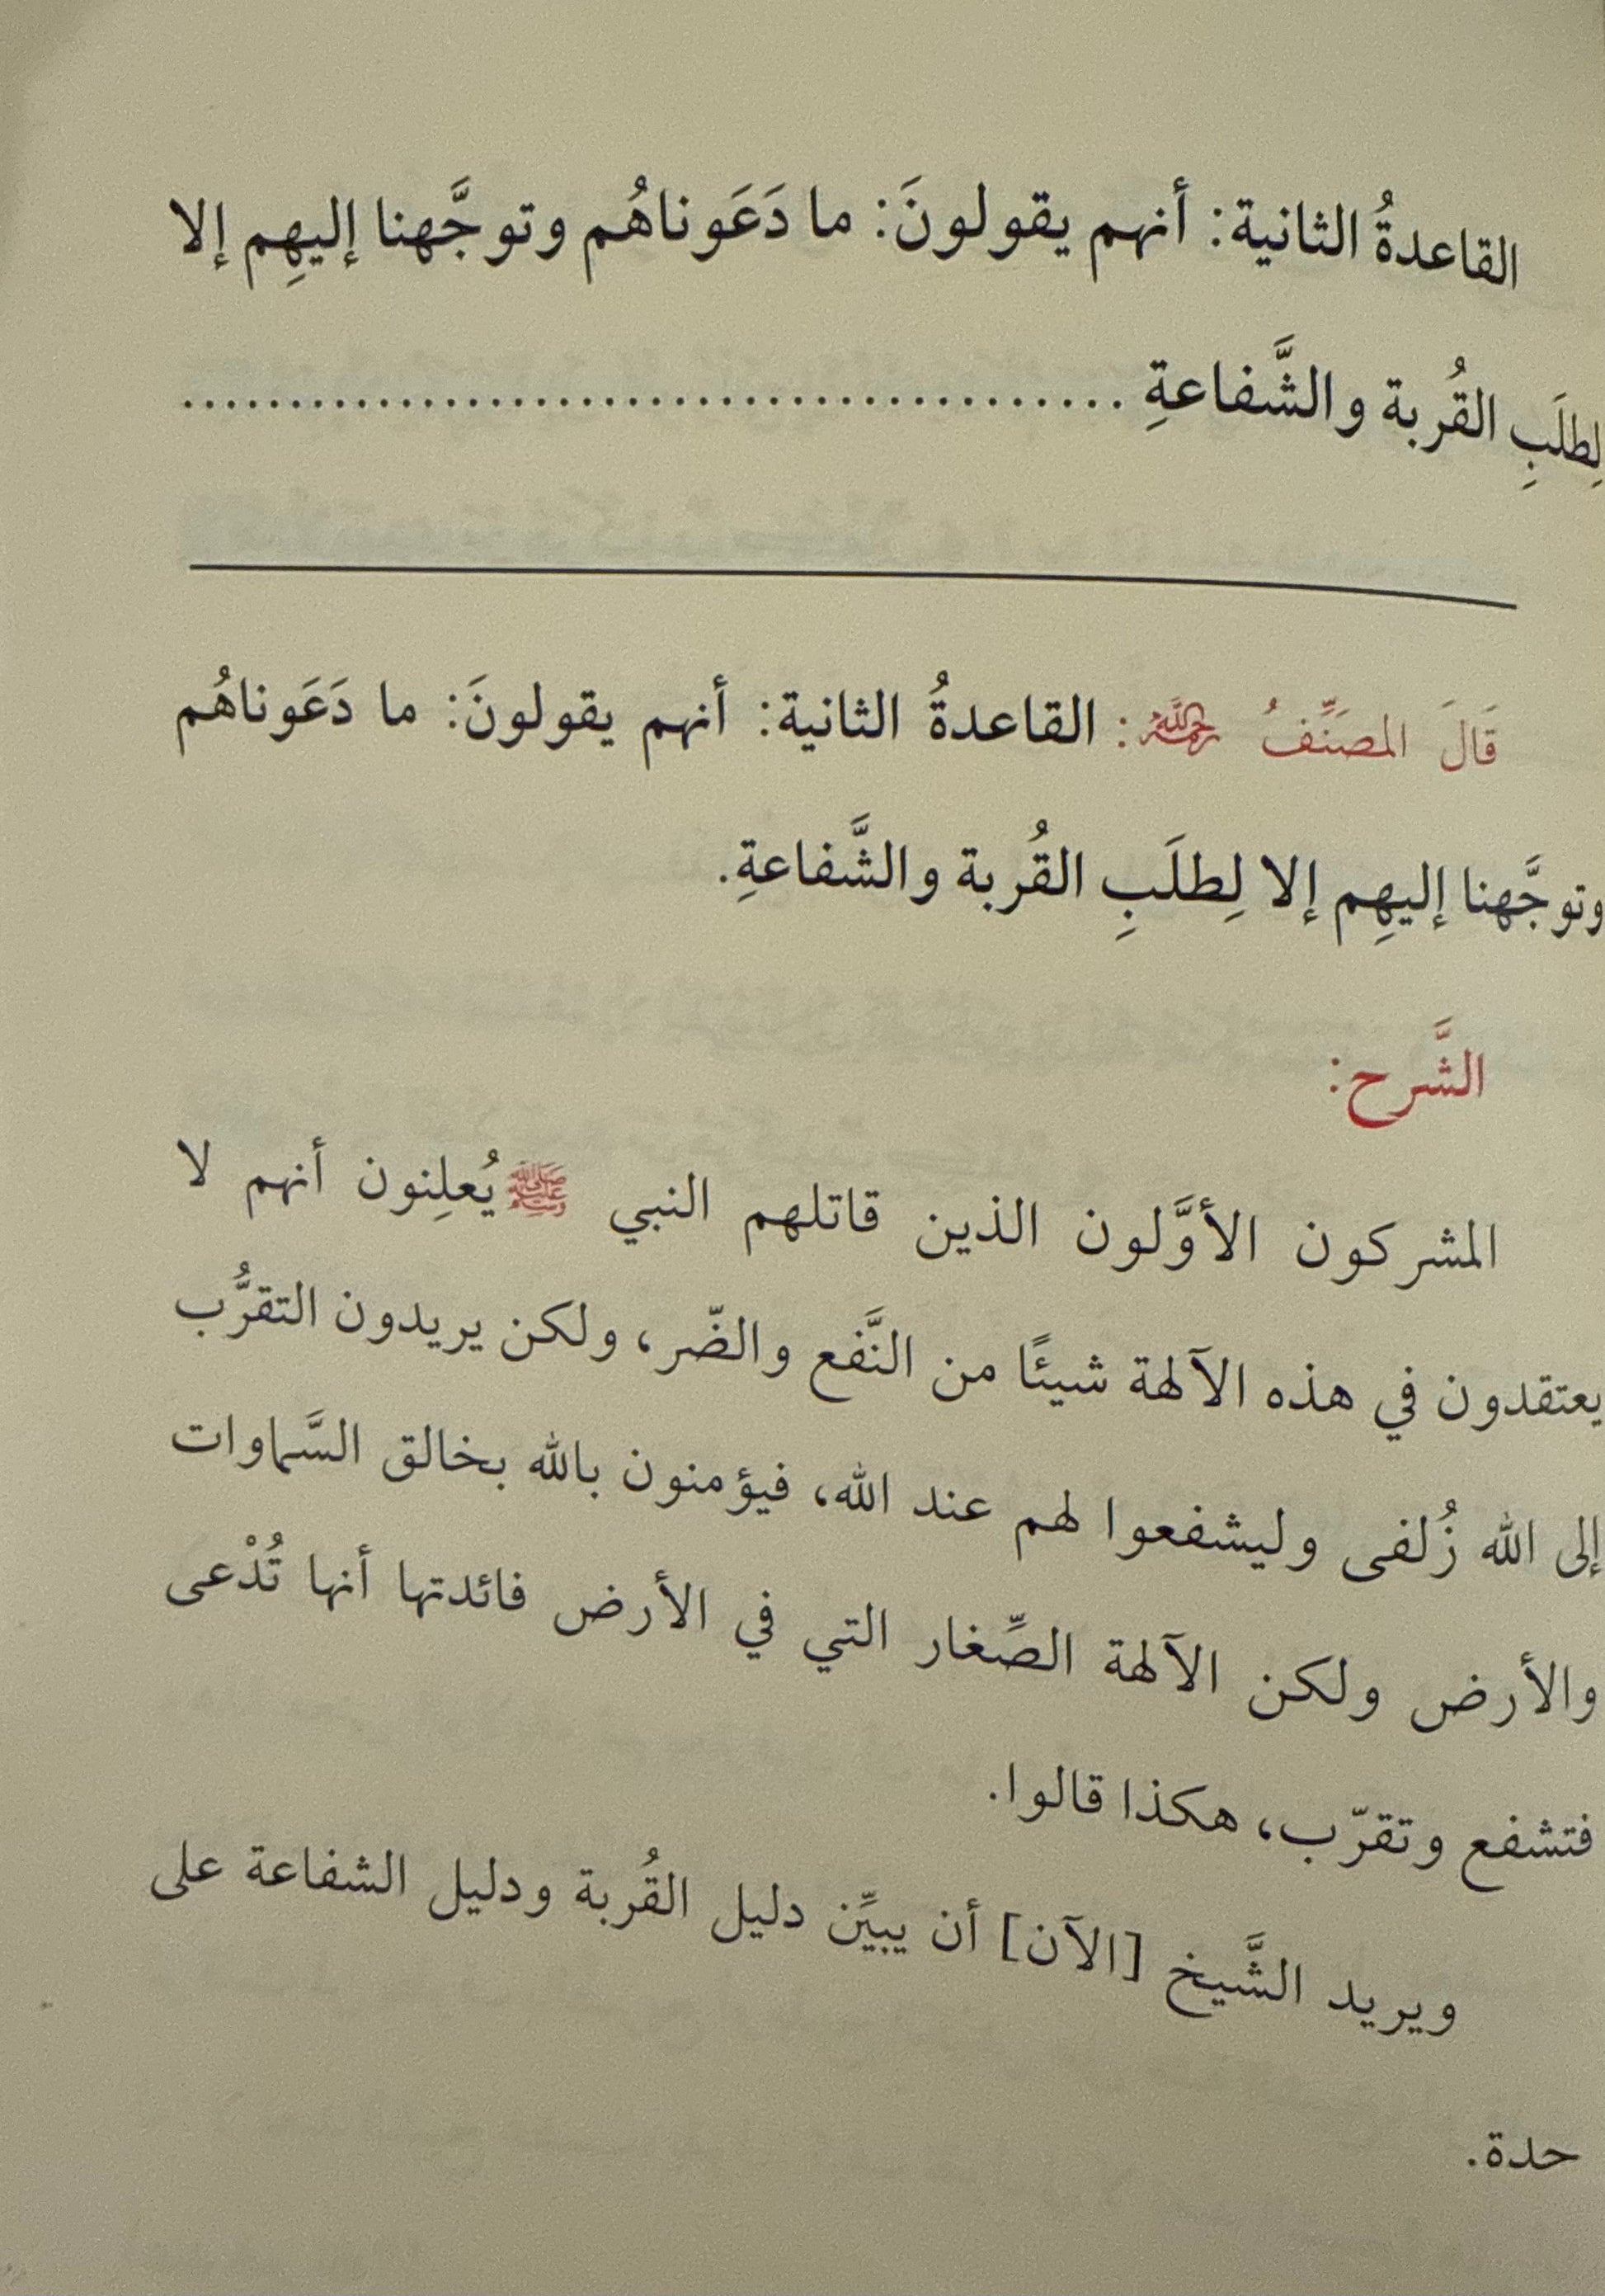 القاعدةُ الثانية: أنهم يقولونَ: ما دَعَوناهُم وتوجَّهنا إليهِم إلا
لِطلَبِ القُربة والشَّفاعةِ ........................................
قَالَ المصَنِّفُ رحمه الله: القاعدةُ الثانية: أنهم يقولونَ: ما دَعَوناهُم
وتوجَّهنا إليهِم إلا لِطلَبِ القُربة والشَّفاعةِ.
الشَّرح:
المشركون الأوَّلون الذين قاتلهم النبي ﷺ يُعلِنون أنهم لا
يعتقدون في هذه الآلهة شيئًا من النَّفع والضّر، ولكن يريدون التقرُّب
إلى الله زُلفى وليشفعوا لهم عند الله، فيؤمنون بالله بخالق السَّماوات
والأرض ولكن الآلهة الصِّغار التي في الأرض فائدتها أنها تُدْعى
فتشفع وتقرّب، هكذا قالوا.
ويريد الشَّيخ [الآن] أن يبيِّن دليل القُربة ودليل الشفاعة على
حدة.